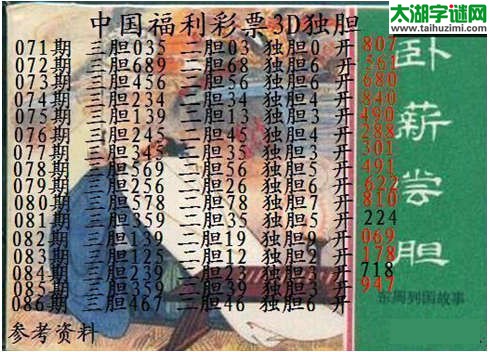 太湖字谜网
www.taihuzimi.com
中国福利彩票3D独胆
071期 三胆035 二胆03 独胆0 开 807
072期 三胆689 二胆68 独胆6 开 561
073期 三胆568 二胆56 独胆6 开 680
074期 三胆234 二胆34 独胆4 开 840
075期 三胆139 二胆13 独胆3 开 490
076期 三胆245 二胆45 独胆4 开 288
077期 三胆345 二胆35 独胆3 开 301
078期 三胆569 二胆56 独胆5 开 491
079期 三胆256 二胆26 独胆6 开 622
080期 三胆578 二胆78 独胆8 开 810
081期 三胆359 二胆35 独胆5 开 224
082期 三胆139 二胆19 独胆9 开 069
083期 三胆125 二胆12 独胆2 开 178
084期 三胆239 二胆23 独胆3 开 718
085期 三胆359 二胆39 独胆9 开 947
086期 三胆467 二胆46 独胆6 开
参考资料
卧薪尝胆
东周列国故事